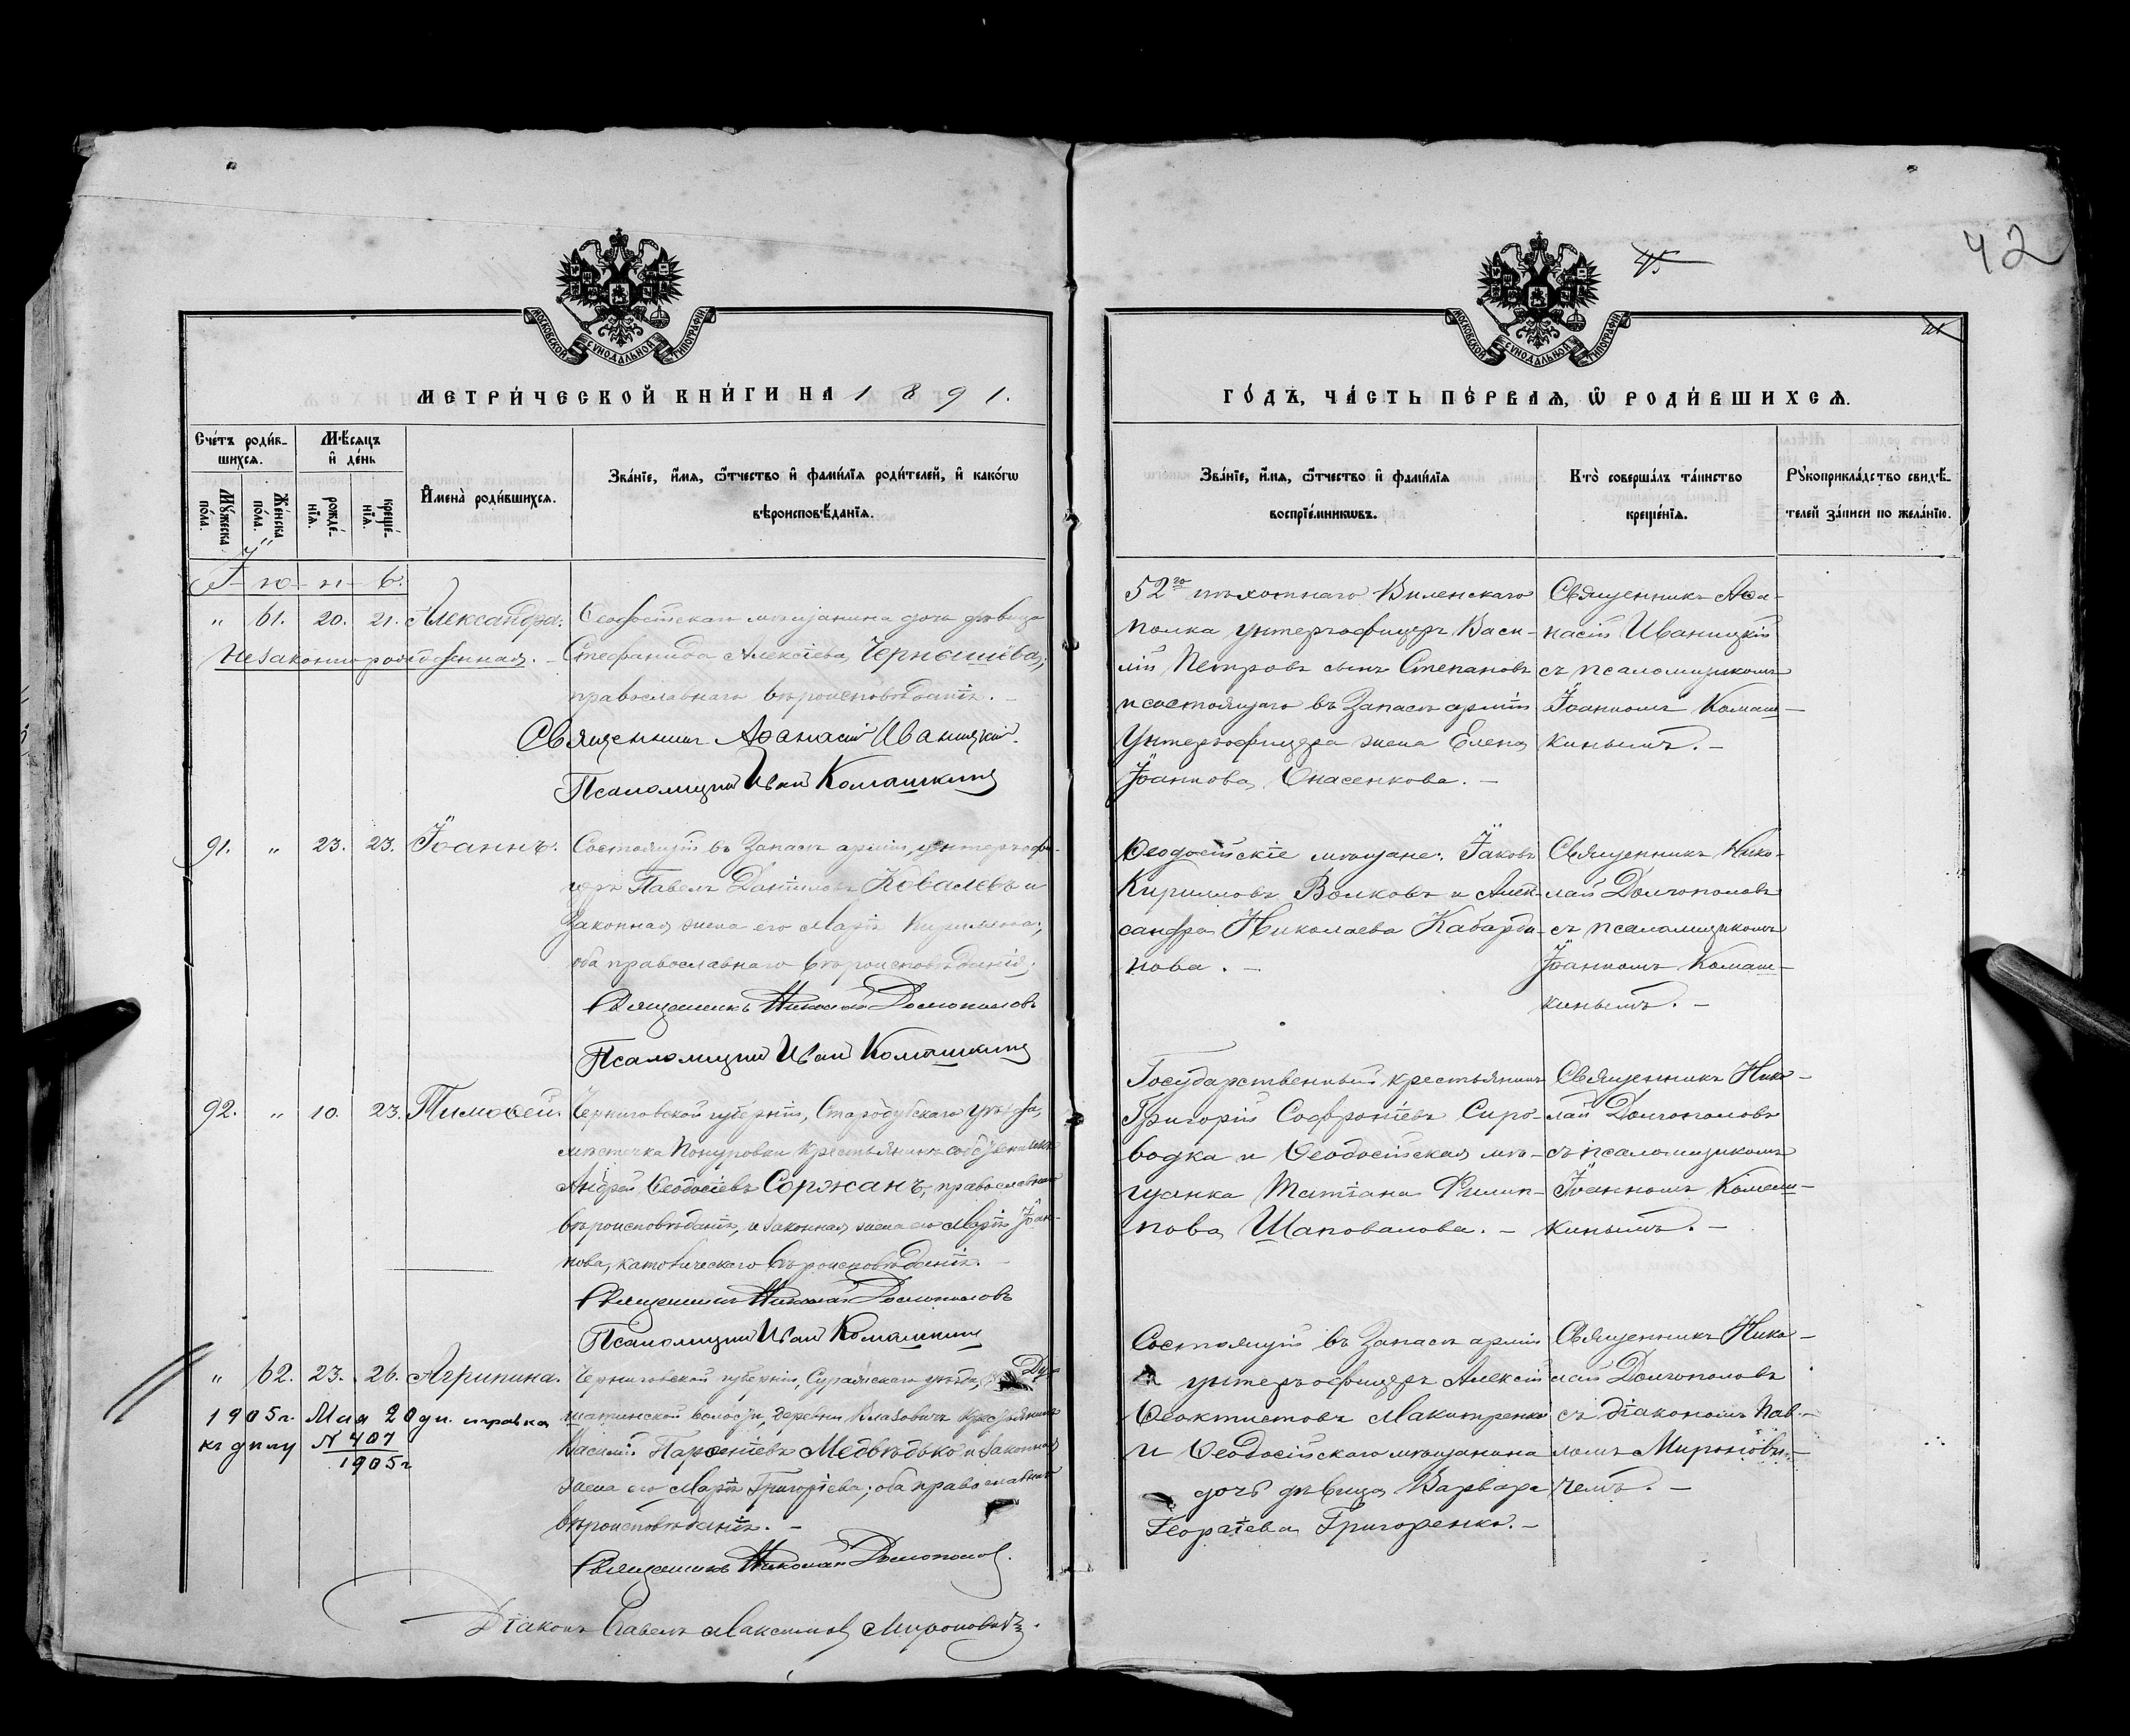 42
45
МОСКОВСКОЙ СѴНОДАЛЬНОЙ ТИПОГРАФІИ
МОСКОВСКОЙ СѴНОДАЛЬНОЙ ТИПОГРАФІИ
МЕТРИ́ЧЕСКОЙ КНИ́ГИ НА 1891.
ГО́ДЪ, ЧА́СТЬ ПЕ́РВАѦ, Ѿ РОДИ́ВШИХСѦ.
Сче́тъ роди́в-
шихсѧ.
Мѣ́сѧцъ
и҆ де́нь
Мꙋ́жеска по́ла.
Же́нска по́ла.
рожде́-
нїѧ.
креще́-
нїѧ.
И҆мена̀ роди́вшихсѧ.
Зва́нїе, и҆́мѧ, ѻ҆́тчество и҆ фами́лїѧ роди́телей, и҆ како́гѡ
вѣроисповѣ́данїѧ.
Зва́нїе, и҆́мѧ, ѻ҆́тчество и҆ фами́лїѧ
воспрїе́мникѡвъ.
Кто̀ соверша́лъ та́инство
креще́нїѧ.
Рꙋкоприкла́дство свидѣ́-
телей за́писи по жела́нїю.
Ї-ю-н-ь.
„ 61. 20. 21. Александра.
Незаконнорожденная.
Ѳеодосійскаго мѣщанина дочь дѣвица
Стефанида Алексіева Чернышёва,
православнаго вѣроисповѣданія.
Священникъ Аѳанасій Иваницкій.
Псаломщикъ Иван Комашкинъ
52го пѣхотнаго Виленскаго
полка унтеръ-офицеръ Васи-
лій Петровъ сынъ Степановъ
и состоящаго въ запасѣ арміи
унтеръ-офицера жена Елена
Їоаннова Опасенкова. –
Священникъ Аѳа-
насій Иваницкій
съ псаломщикомъ
Їоанномъ Комаш-
кинымъ. –
91. „ 23. 23. Їоаннъ.
Состоящій въ запасѣ арміи, унтеръ-офи-
церъ Павелъ Даніиловъ Ковалевъ и
законная жена его Марія Кириллова,
оба православнаго вѣроисповѣданія.
Священникъ Николай Долгополовъ
Псаломщикъ Иван Комашкинъ
Ѳеодосійскіе мѣщане: Їаковъ
Кирилловъ Волковъ и Алек-
сандра Николаева Кабарди-
нова. –
Священникъ Нико-
лай Долгополовъ
съ псаломщикомъ
Їоанномъ Комаш-
кинымъ. –
92. „ 10. 23. Тимоѳей.
Черниговской губерніи, Стародубскаго уѣзда,
мѣстечка Понуровки крестьянинъ собственникъ
Андрей Ѳеодосіевъ Соржанъ, православнаго
вѣроисповѣданія, и законная жена его Марія Їоан-
нова, католическаго вѣроисповѣданія.
Священникъ Николай Долгополовъ
Псаломщикъ Иван Комашкинъ
Государственный крестьянинъ
Григорій Софроніевъ Сиро-
водка и Ѳеодосійская мѣ-
щанка Татіана Филип-
пова Шаповалова. –
Священникъ Нико-
лай Долгополовъ
съ псаломщикомъ
Їоанномъ Комаш-
кинымъ. –
„ 62. 23. 26. Агрипина.
1905г. Мая 20 дн. справка
къ дѣлу N 407
1905г
Черниговской губерніи, Суражскаго уѣзда, Ду-
шатинской волости, деревни Влазовичъ крестьянинъ
Василій Парѳеніевъ Медвѣдько и законная
жена его Марія Григоріева; оба православнаго
вѣроисповѣданія. –
Священникъ Николай Долгополов.
Діаконъ Павелъ Максимов Мироновичъ.
Состоящій въ запасѣ арміи
унтеръ-офицеръ Алексій
Ѳеоктистовъ Макитренко
и Ѳеодосійскаго мѣщанина
дочь дѣвица Варвара
Георгіева Григоренко. –
Священникъ Нико-
лай Долгополовъ
съ діакономъ Пав-
ломъ Миронови-
чемъ. –